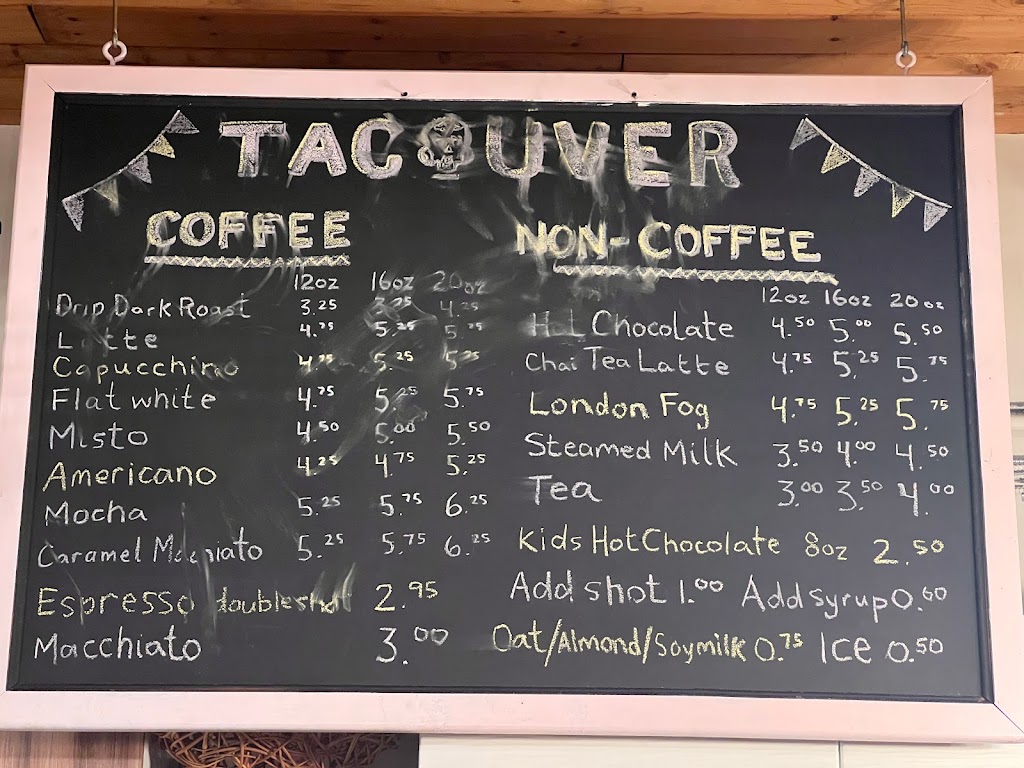 TACOUVER
COFFEE
12oz 16oz 20oz
Drip Dark Roast 3.25 3.75 4.25
Latte 4.75 5.25 5.75
Capucchino 4.75 5.25 5.75
Flat white 4.75 5.25 5.75
Misto 4.50 5.00 5.50
Americano 4.25 4.75 5.25
Mocha 5.25 5.75 6.25
Caramel Macchiato 5.25 5.75 6.25
Espresso doubleshot 2.95
Macchiato 3.00
NON-COFFEE
12oz 16oz 20oz
Hot Chocolate 4.50 5.00 5.50
Chai Tea Latte 4.75 5.25 5.75
London Fog 4.75 5.25 5.75
Steamed Milk 3.50 4.00 4.50
Tea 3.00 3.50 4.00
Kids Hot Chocolate 8oz 2.50
Add shot 1.00 Add syrup 0.60
Oat/Almond/Soymilk 0.75 Ice 0.50